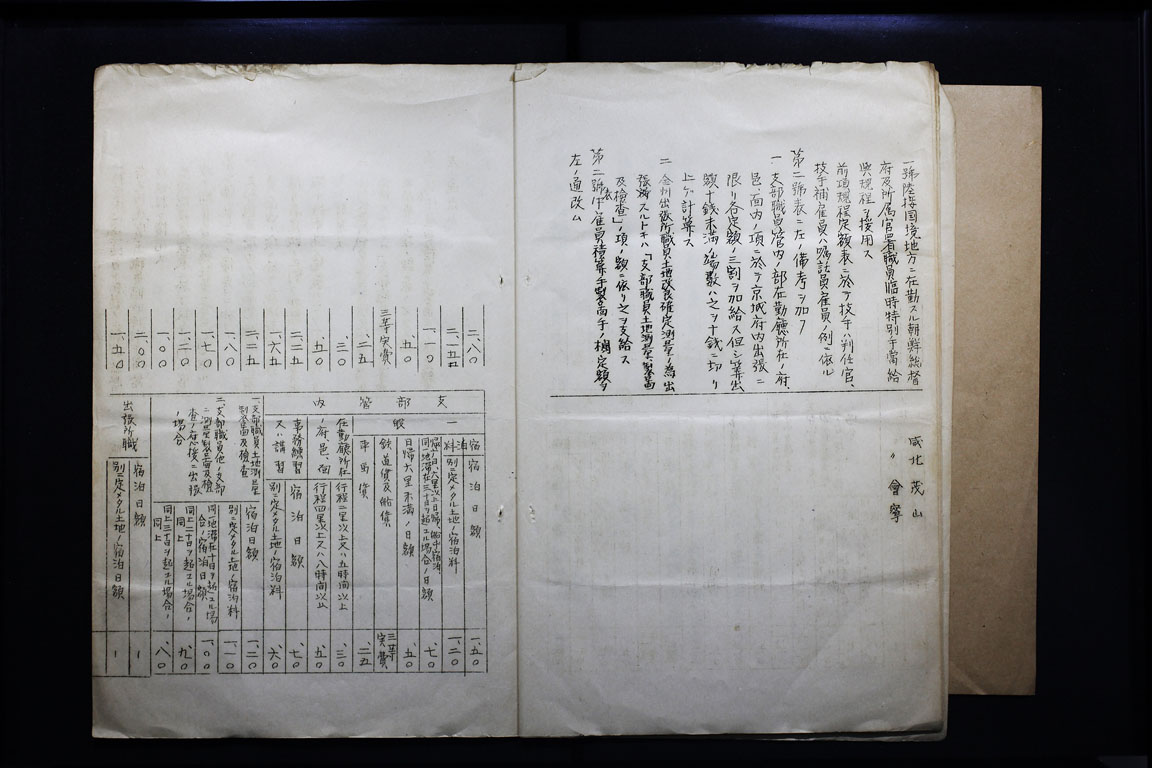 一號陸接国境地方ニ在勤スル朝鮮総督
府及所属官署職員臨時特別手當給
與規程ヲ援用ス
前項規程定額表ニ於テ技手ハ判任官、
技手補雇員ハ嘱託員雇員ノ例ニ依ル
第二號表ニ左ノ備考ヲ加フ
一 支部職員管内ノ部在勤廳所在ノ府、
邑、面内ノ項ニ於テ京城府内出張ニ
限リ各定額ノ三割ヲ加給ス但シ算出
額十銭未満ノ端数ハ之ヲ十銭ニ切リ
上ゲ計算ス
二 出張所職員土地改良確定測量ノ為出
張スルトキハ「支部職員土地測量、製図
及檢査」ノ項ノ額ニ依リ之ヲ支給ス
第二號表中雇員積算手製図手ノ欄定額ヲ
左ノ通改ム
咸北茂山
〃 會寧
二、八〇
二、五五
一、一〇
、五〇
三等実費
、二五
、三〇
、五〇
一、六五
二、二五
一、八〇
一、七〇
一、二〇
一、〇〇
二、〇〇
一、五〇
支部管内
一般
宿泊料
宿泊日額
別ニ定メタル土地ノ宿泊料
同一地滞在三十日ヲ超ユル場合ノ日額
日帰六里未満ノ日額
鉄道賃及船賃
車馬賃
在勤廳所在ノ府、邑、面
行程二里以上又ハ五時間以上
行程四里以上又ハ八時間以上
事務練習又ハ講習
宿泊日額
別ニ定メタル土地ノ宿泊料
一、支部職員土地測量製図及檢査
宿泊日額
別ニ定メタル土地ノ宿泊料
二、支部職員他ノ支部ニ測量製図及檢査ノ應援ニ出張ノ場合
同一地滞在十日ヲ超ユル場合ノ宿泊日額
同上二十日ヲ超ユル場合ノ同上
同上三十日ヲ超ユル場合ノ同上
出張所職
宿泊日額
別ニ定メタル土地ノ宿泊日額
一、五〇
一、二〇
、七〇
、五〇
三等実費
、二五
、三〇
、五〇
、七〇
、六〇
一、二〇
一、一〇
一、〇〇
、九〇
、八〇